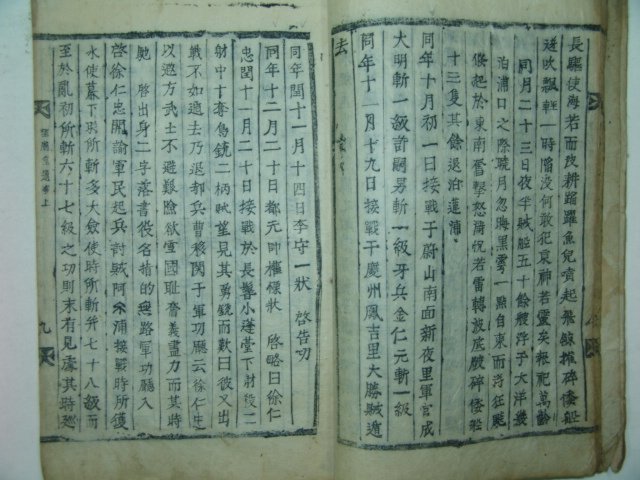 長驅使海若而戎耕蹈羅魚兒噴起飛鯨摧碎倭艦
迷吹飄輕一時陷沒何敢犯哀神若靈矣報祀萬齡
同月二十三日夜半賊艇五十餘艘浮于大洋幾
泊浦口之際曉月忽晦黑雲一點自東而浮狂颷
倐起於東南奮擊怒濤恍若雷轉波底震碎倭艇
十三隻其餘退泊蓮浦
同年十月初一日接戰于蔚山南面新夜里軍官成
大明斬一級許嗣男斬一級牙兵金仁元斬一級
同年十一月十九日接戰于慶州鳳吉里大勝賊遁
去
同年閏十一月十四日李守一狀 啓告功
同年十二月二十日都元帥權慄狀 啓略曰徐仁
忠閏十一月二十日接戰於長鬐小蓬臺下射殺二
射中十奪鳥銃二柄賊望見其勇銳而歎曰彼又出
戰不如遠去乃退都兵曹移關于軍功廳云徐仁忠
以遐方武士不避艱險欲雪國恥奮義盡力而其時
馳 啓出身二字落書役名指的無路軍功廳入
啓徐仁忠開諭軍民起兵討賊阿尒浦接戰時所獲
水使幕下時所斬多大僉使時所斬幷七十八級而
至於亂初所斬六十七級之功則末有見處其時巡
上
九